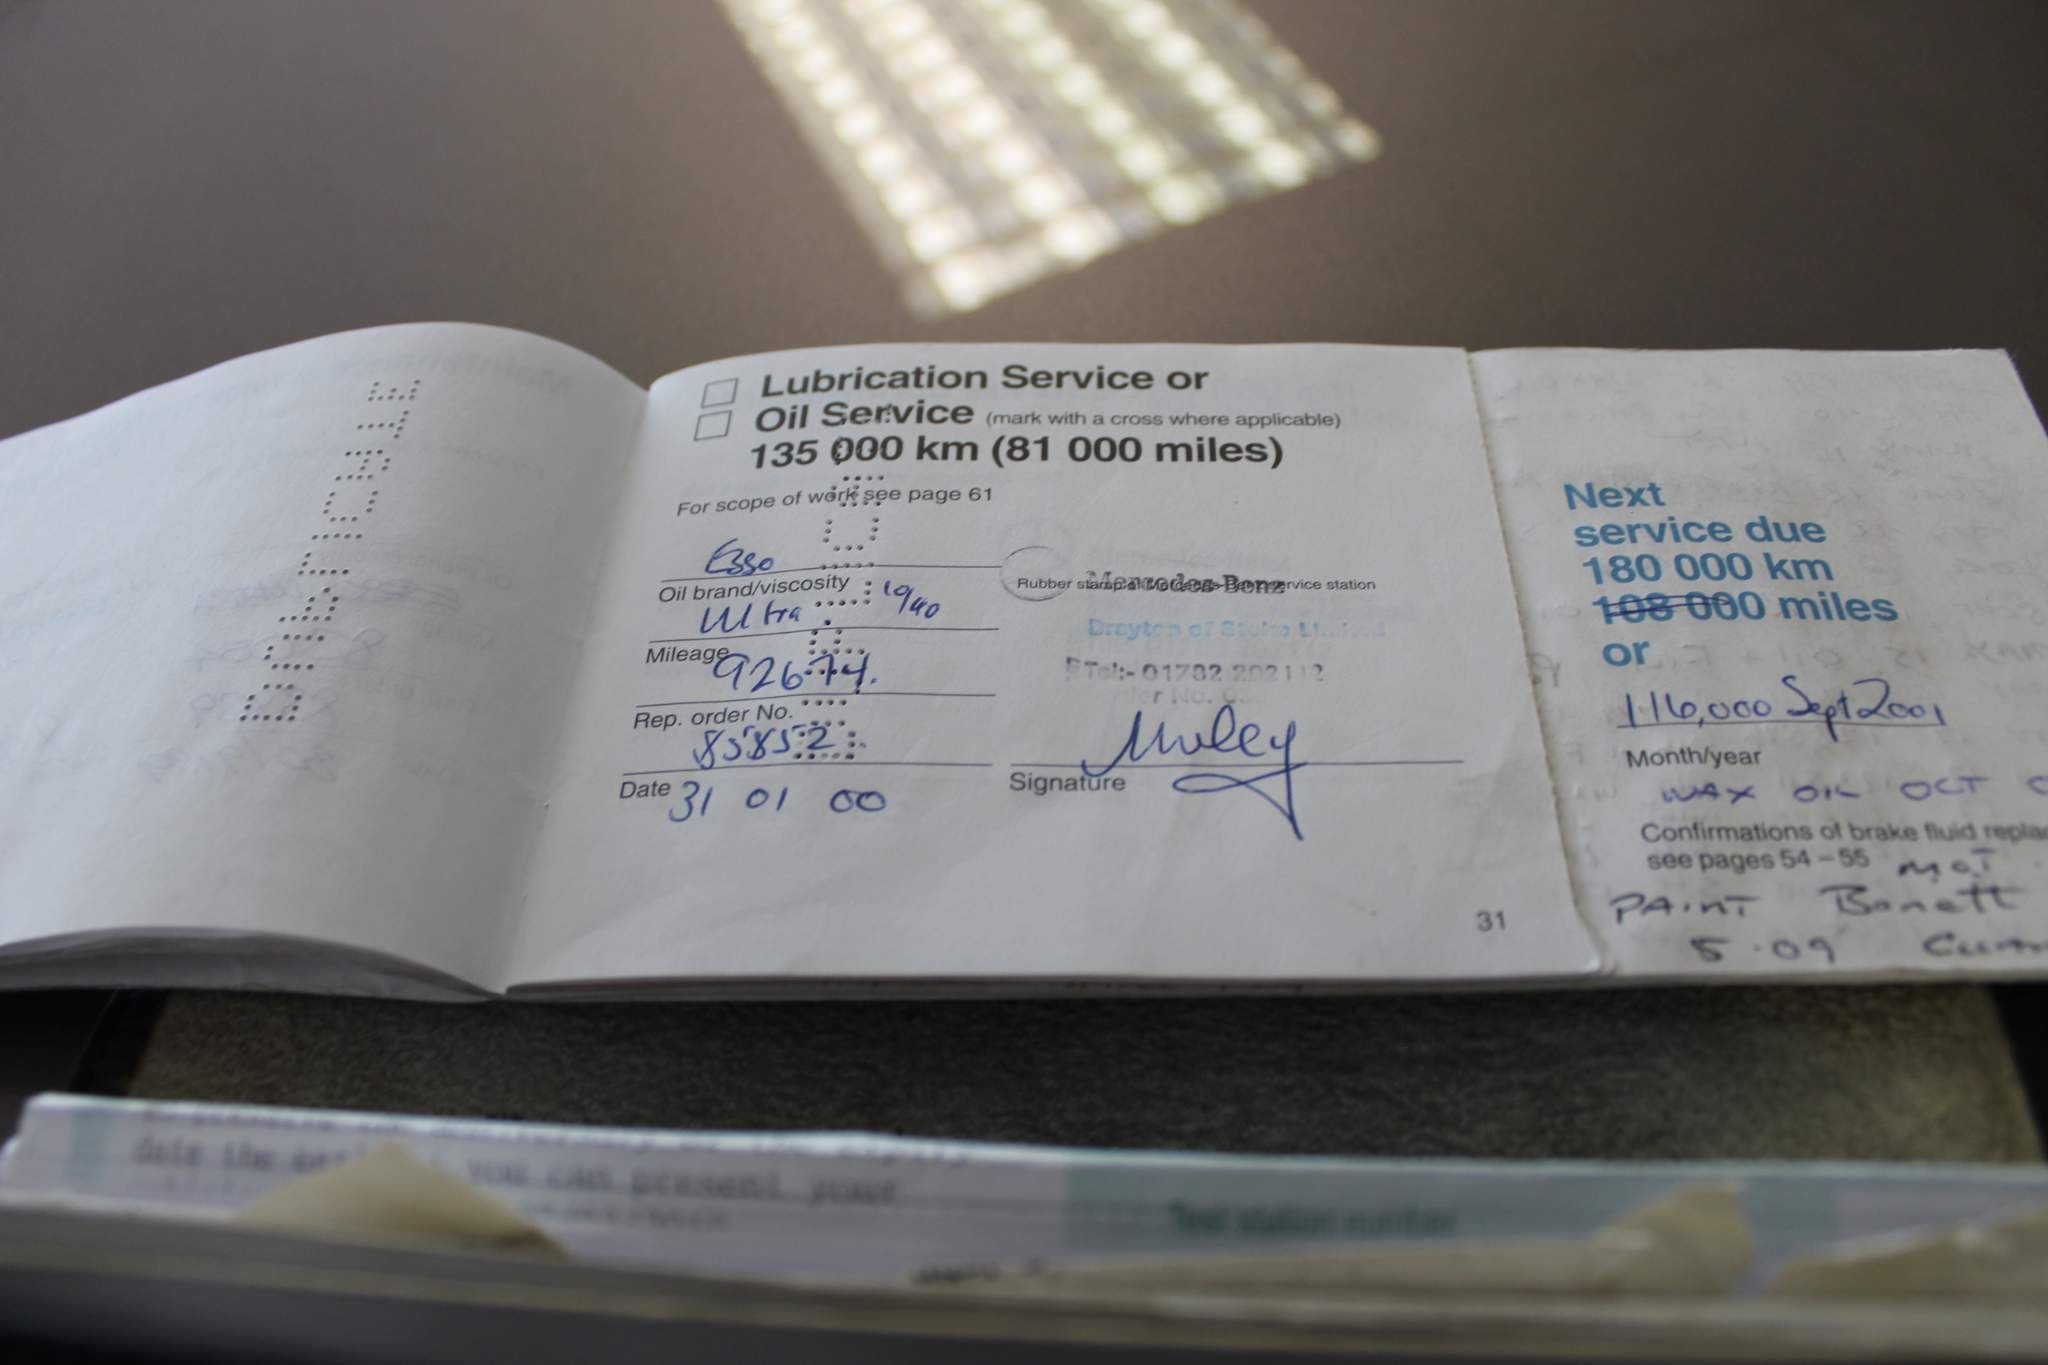 DUPLICATE
Lubrication Service or
Oil Service (mark with a cross where applicable)
135 000 km (81 000 miles)
For scope of work see page 61
Esso
Oil brand/viscosity
Ultra 10/40
Mileage
92674.
Rep. order No.
85852
Date 31 01 00
Rubber stamp of Mercedes-Benz service station
Mercedes-Benz
Drayton of Stoke Limited
Tel:- 01782 202112
Signature
31
Next
service due
180 000 km
108 000 miles
or
116,000 Sept 2001
Month/year
WAX OIL OCT
Confirmations of brake fluid
see pages 54–55
MOT
PAINT Bonett
5.09
you can present your
Test station number